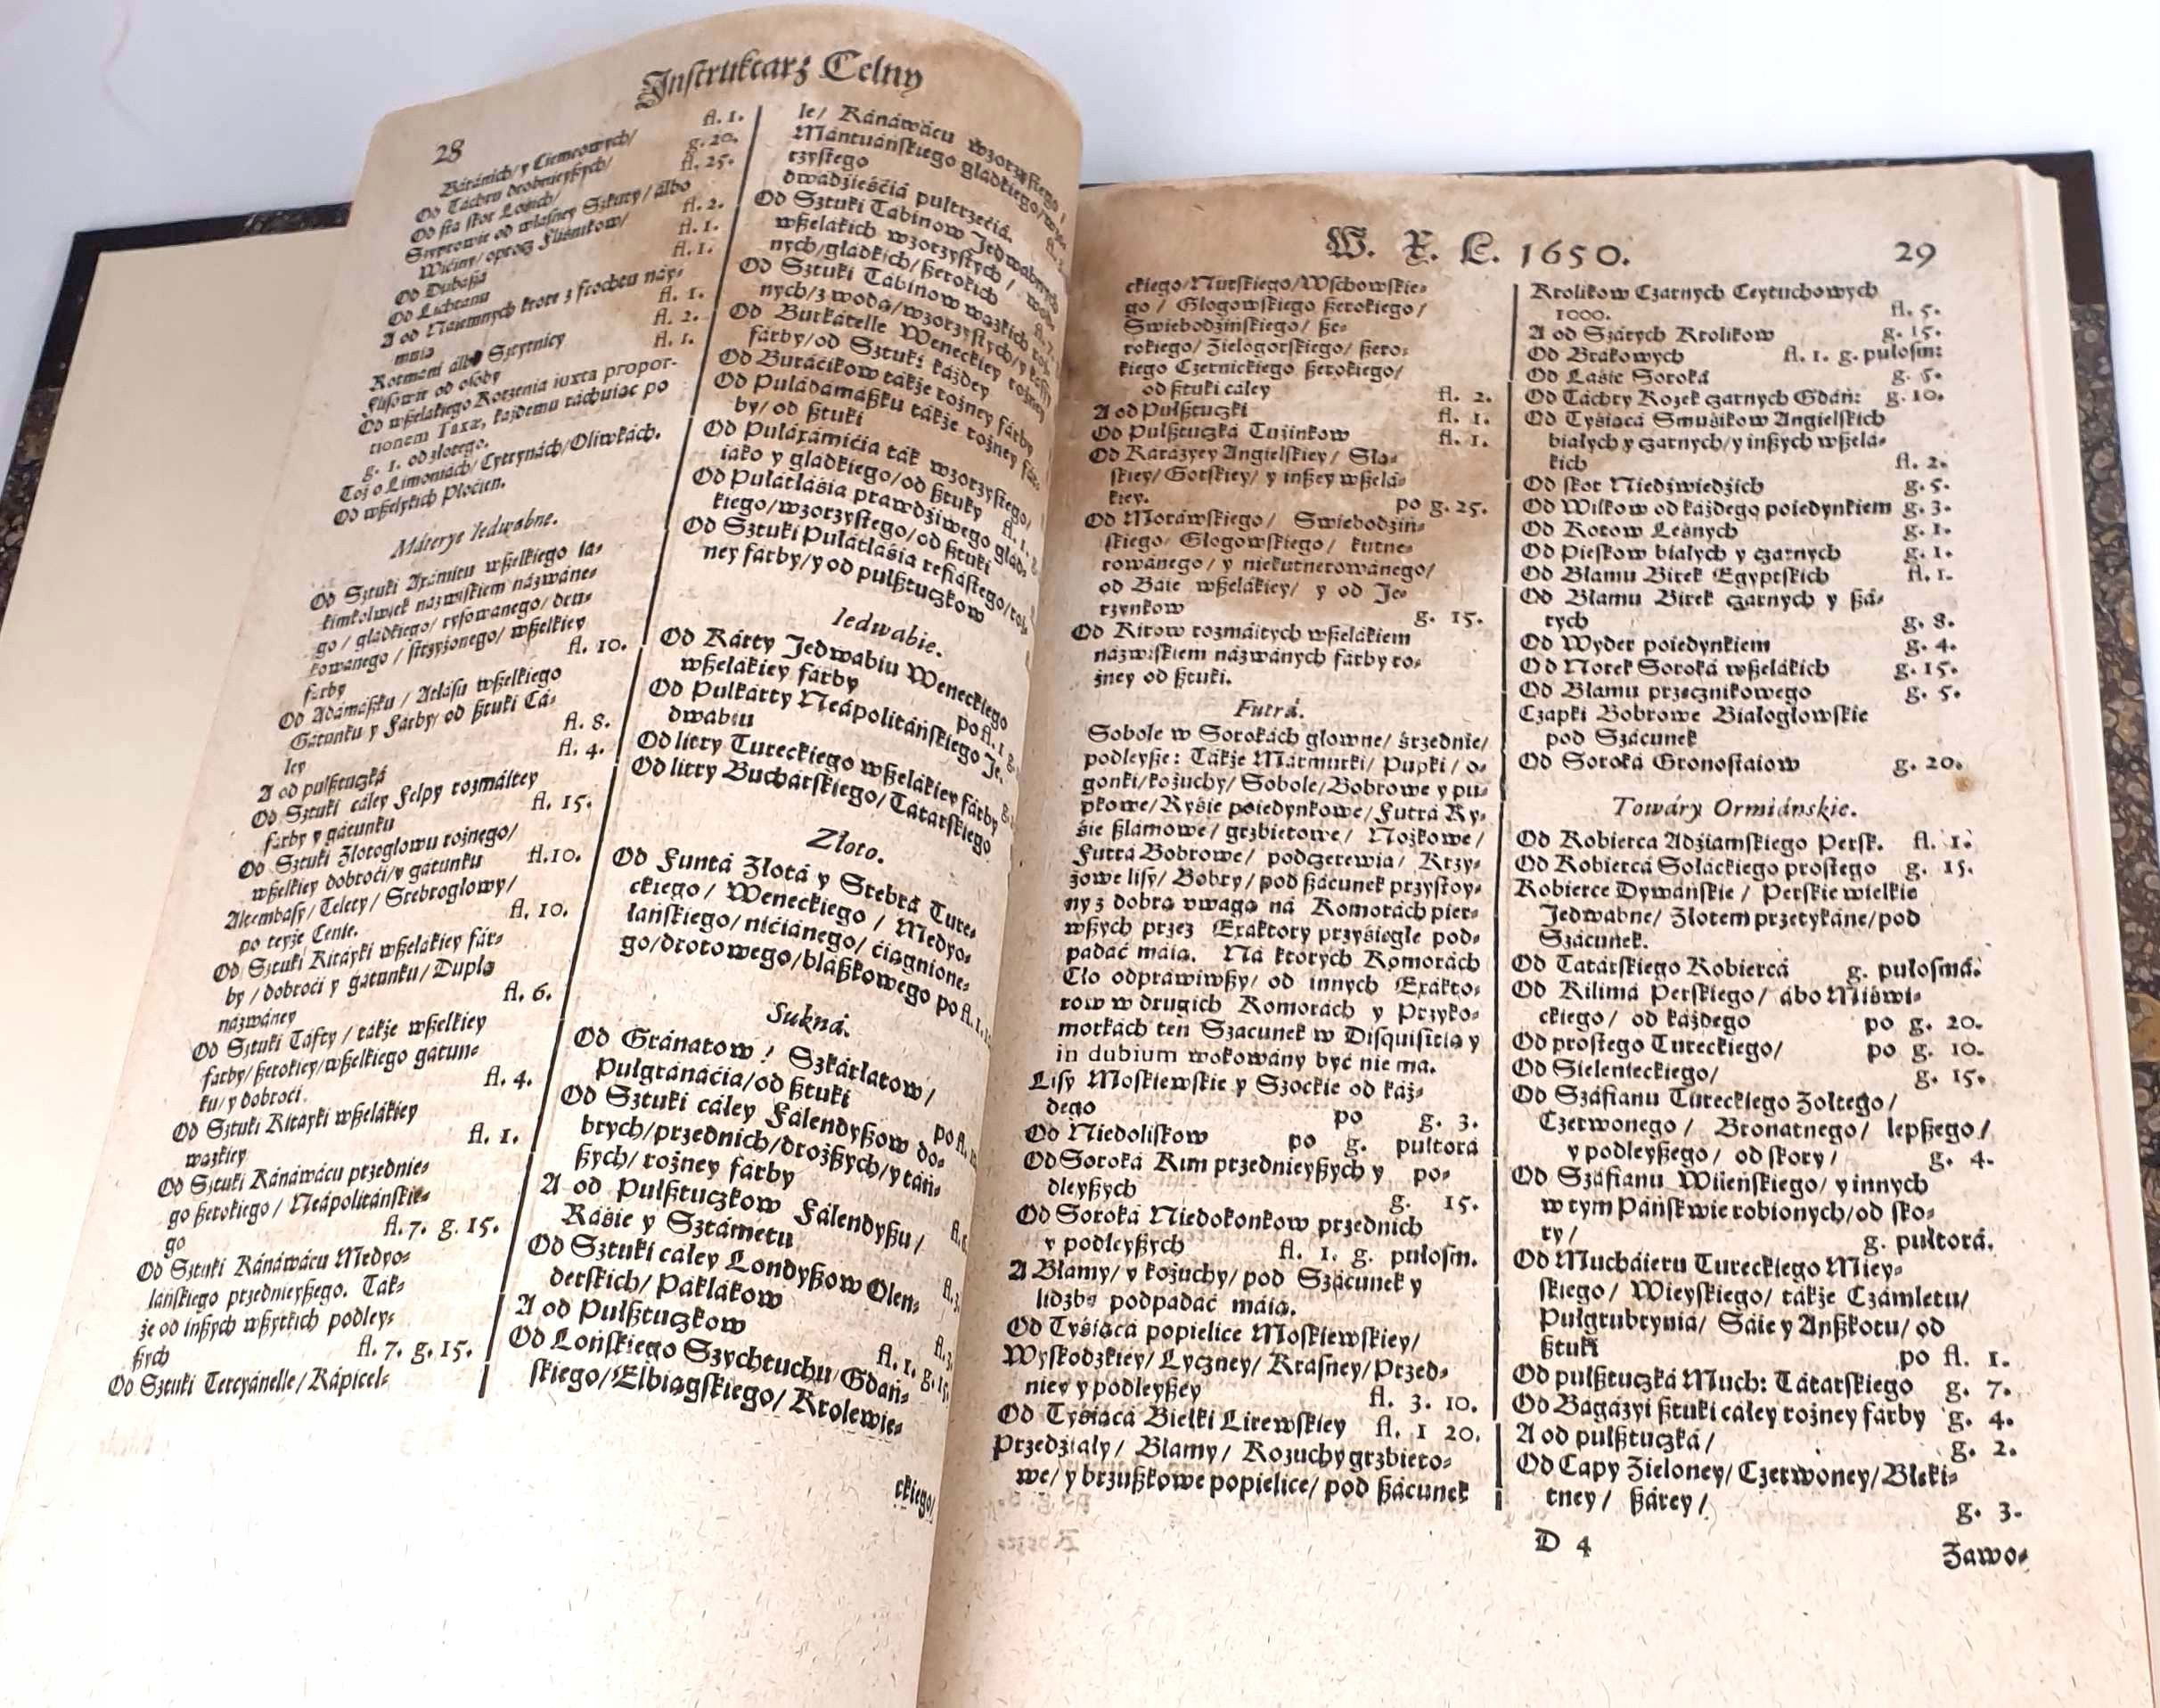 Instruktarz Celny
28
Báránich/ y Ciemcowych/ fl. 1.
Od Táchru drobnieyßych/ g. 20.
Od sta skor Losich/ fl. 25.
Styrowie od wlasney Szkuty/ álbo
Wiciny/ oprocz Flisnikow/ fl. 2.
Od Dubaßa fl. 1.
Od Lichtanu fl. 1.
A od Náiemnych ktore z frochtu náy-
muią fl. 1.
Rotmani álbo Sztyrnicy fl. 2.
Flisowie od osoby fl. 1.
Od wßelákiego Korzenia iuxta propor-
tionem Taxæ, káżdemu ráchuiąc po
g. 1. od złotego.
Toż o Limoniách/ Cytrynách/ Oliwkách.
Od wßelkich Płocien.
Máterye Iedwabne.
Od Sztuki Axámitu wßelkiego iá-
kimkolwiek názwiskiem názwáne-
go / gładkiego/ ryfowanego/ dru-
kowanego / strzyżonego/ wßelkiey
fárby fl. 10.
Od Adámaßku / Atłásu wßelkiego
Gátunku y Fárby/ od ßtuki Cá-
ley fl. 8.
A od pułßtuczká fl. 4.
Od Sztuki cáley Felpy rozmáitey
fárby y gátunku fl. 15.
Od Sztuki Złotogłowu rożnego/
wßelkiey dobroći/ y gátunku fl. 10.
Altembasy/ Telety/ Srebrogłowy/
po teyże Cenie. fl. 10.
Od Sztuki Kitáyki wßelákiey fár-
by / dobroći y gátunku/ Duplą
názwáney fl. 6.
Od Sztuki Táfty / tákże wßelkiey
fárby/ ßerokiey/ wßelkiego gátun-
ku/ y dobroći. fl. 4.
Od Sztuki Kitáyki wßelákiey
wązkiey fl. 1.
Od Sztuki Kánáwácu przednie-
go ßerokiego / Neápolitáńskie-
go fl. 7. g. 15.
Od Sztuki Kánáwácu Medyo-
láńskiego przednieyßego. Ták-
że od inßych wßytkich podley-
ßych fl. 7. g. 15.
Od Sztuki Tercyánelle/ Kápicel-
le/ Kánáwácu wzorzystego /
Mántuáńskiego gládkiego/
rzystego
dwádzieśćiá pułtrzeciá.
Od Sztuki Tábinow Jedwabnych
wßelákich wzorzystych /
nych/ gládkich/ ßerokich
Od Sztuki Tábinow wązkich
nych/ z wodą/ wzorzystych/
Od Burkátelle Weneckiey rożney
fárby/ od Sztuki káżdey
Od Burácikow tákże rożney fárby
Od Puładámaßku tákże rożney fár-
by/ od ßtuki
Od Pułáxámićia ták wzorzystego/
iáko y gládkiego/ od ßtuky fl. 1.
Od Pułátłásiá práwdźiwego gład-
kiego/ wzorzystego/ od ßtuki
Od Sztuki Pułátłásiá refiástego/
ney fárby/ y od pułßtuczkow
Iedwabie.
Od Kárty Jedwabiu Weneckiego
wßelákiey fárby po fl. 1
Od Pułkárty Neápolitáńskiego Je-
dwabiu
Od litry Tureckiego wßelákiey fárby
Od litry Buchárskiego/ Tátárskiego
Złoto.
Od Funtá Złotá y Srebrá Ture-
ckiego / Weneckiego / Medyo-
láńskiego/ nićianego/ ćiągnione-
go/ drotowego/ bláßkowego po fl.
Sukná.
Od Gránatow / Szkárłatow/
Pułgránáćia/ od ßtuki po fl.
Od Sztuki cáley Fálendyßow do-
brych/ przednich/ droższych/ y táń-
ßych/ rożney fárby
A od Pułßtuczkow Fálendyßu/
Rásie y Sztámetu
Od Sztuki cáley Londyßow Olen-
derskich/ Páklákow
A od Pułßtuczkow
fl. 1. g.
Od Lońskiego Szychtuchu/ Gdáń-
skiego/ Elbiągskiego/ Krolewie-
ckiego/
W. X. L. 1650. 29
ckiego/ Nurskiego/ Wschowskie-
go / Głogowskiego ßerokiego/
Swiebodzińskiego/ ße-
rokiego/ Zielogorskiego/ ßero-
kiego Czernickiego ßerokiego/
od ßtuki cáley fl. 2.
A od Pułßtuczki fl. 1.
Od Pułßtuczká Tuzinkow fl. 1.
Od Karázyey Angielskiey/ Slą-
skiey/ Gorskiey/ y inßey wßelá-
kiey. po g. 25.
Od Moráwskiego/ Swiebodźiń-
skiego/ Głogowskiego/ kutne-
rowánego/ y niekutnerowánego/
od Báie wßelákiey/ y od Je-
rzynkow g. 15.
Od Kirow rozmáitych wßelákiem
názwiskiem názwánych fárby ro-
żney od ßtuki.
Futrá.
Sobole w Sorokách głowne/ srzednie/
podleyße: Tákże Mármurki/ Pupki / o-
gonki/ kożuchy/ Sobole/ Bobrowe y pu-
pkowe/ Ryśie poiedynkowe/ Futrá Ry-
śie błamowe/ grzbietowe/ Nożkowe/
Futrá Bobrowe/ podczerewia/ Krzy-
żowe lisy/ Bobry/ pod ßácunek przystoy-
ny z dobrą vwagą ná Komorách pier-
wßych przez Exáktory przyśięgłe pod-
padáć máią. Ná ktorych Komorách
Cło odpráwiwßy/ od innych Exákto-
row w drugich Komorách y Przyko-
morkách ten Szacunek w Disquisitią y
in dubium wokowány być nie ma.
Lisy Moskiewskie y Szockie od káż-
dego po g. 3.
Od Niedoliskow po g. pułtorá
Od Soroká Kun przednieyßych y po-
dleyßych g. 15.
Od Soroká Niedokonkow przednich
y podleyßych fl. 1. g. pułosm.
A Błamy/ y kożuchy/ pod Szácunek y
lidzbę podpadáć máią.
Od Tyśiącá popielice Moskiewskiey/
Wyskodzkiey/ Lyczney/ Krasney/ Przed-
niey y podleyßey fl. 3. 10.
Od Tyśiącá Bielki Litewskiey fl. 1 20.
Przedźiáły/ Błamy/ Kozuchy grzbieto-
we/ y brzußkowe popielice/ pod ßácunek
Krolikow Czarnych Ceytuchowych
1000. fl. 5.
A od Szárych Krolikow g. 15.
Od Brákowych fl. 1. g. pułosm:
Od Lásic Soroká g. 5.
Od Táchry Kozek czarnych Gdáń: g. 10.
Od Tyśiącá Smusikow Angielskich
białych y czarnych/ y inßych wßelá-
kich fl. 2.
Od skor Niedźwiedźich g. 5.
Od Wilkow od káżdego poiedynkiem g. 3.
Od Kotow Leśnych g. 1.
Od Pieskow białych y czarnych g. 1.
Od Błamu Birek Egyptskich fl. 1.
Od Błamu Birek czarnych y ßá-
rych g. 8.
Od Wyder poiedynkiem g. 4.
Od Norek Soroká wßelákich g. 15.
Od Błamu przecznikowego g. 5.
Czapki Bobrowe Białogłowskie
pod Szácunek
Od Soroká Gronostaiow g. 20.
Towáry Ormiáńskie.
Od Kobierca Adźiamskiego Persk. fl. 1.
Od Kobiercá Soláckiego prostego g. 15.
Kobierce Dywáńskie / Perskie wielkie
Jedwabne/ Złotem przetykáne/ pod
Szácunek.
Od Tatárskiego Kobiercá g. pułosmá.
Od Kilimá Perskiego/ ábo Miświ-
ckiego/ od káżdego po g. 20.
Od prostego Tureckiego/ po g. 10.
Od Sielenieckiego/ g. 15.
Od Száfianu Tureckiego Zołtego/
Czerwonego / Bronatnego/ lepßego/
y podleyßego/ od skory/ g. 4.
Od Száfianu Wileńskiego/ y innych
w tym Páństwie robionych/ od sko-
ry/ g. pułtorá.
Od Mucháieru Tureckiego Miey-
skiego/ Wieyskiego/ tákże Czámletu/
Pułgrubrynia/ Sáie y Anßkotu/ od
ßtuki po fl. 1.
Od pułßtuczká Much: Tátárskiego g. 7.
Od Bágázyi ßtuki cáley rożney fárby g. 4.
A od pułßtuczká/ g. 2.
Od Capy Zieloney/ Czerwoney/ Błęki-
tney/ ßárey/ g. 3.
D 4
Zawo-